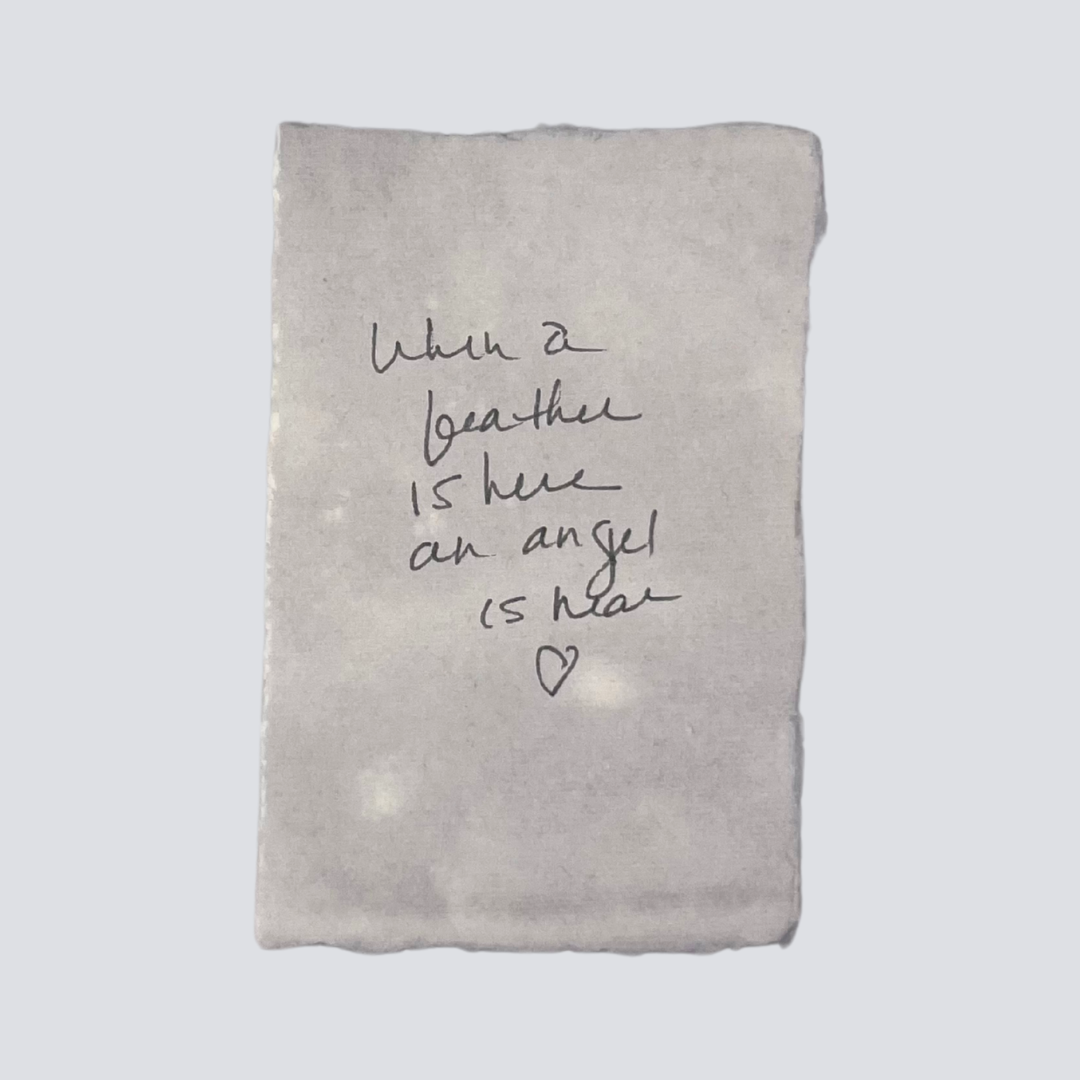 When a
feather
is here
an angel
is near
♡